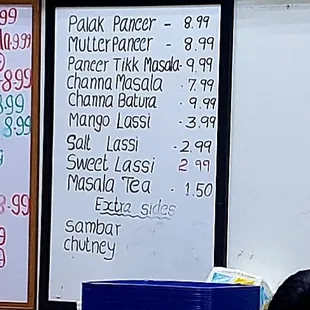 99
9.99
8.99
8.99
8.99
8.99
Palak Paneer - 8.99
Mutter Paneer - 8.99
Paneer Tikk Masala - 9.99
Channa Masala - 7.99
Channa Batura - 9.99
Mango Lassi - 3.99
Salt Lassi - 2.99
Sweet Lassi 2.99
Masala Tea - 1.50
Extra sides
sambar
chutney